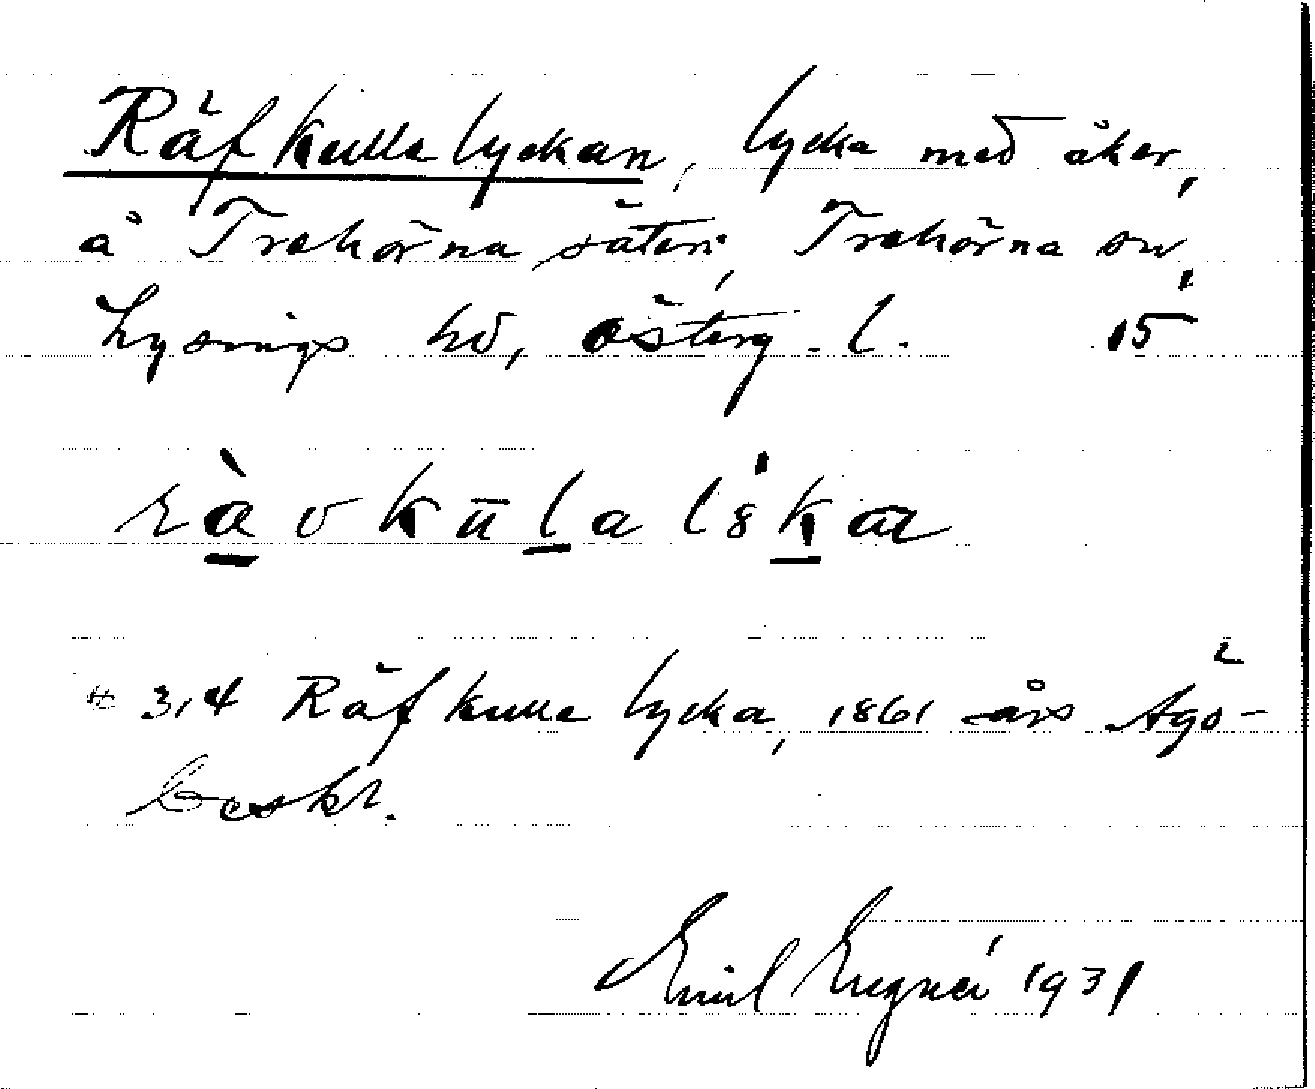 Räfkulle lyckan, lycka med åker,
å Trehörna säteri, Trehörna sn,
Lysings hd, Österg. l. 15
ràvkūlalskaɪ
# 314 Räfkulle lycka, 1861 års Ägo-
beskr.
Emil 1931